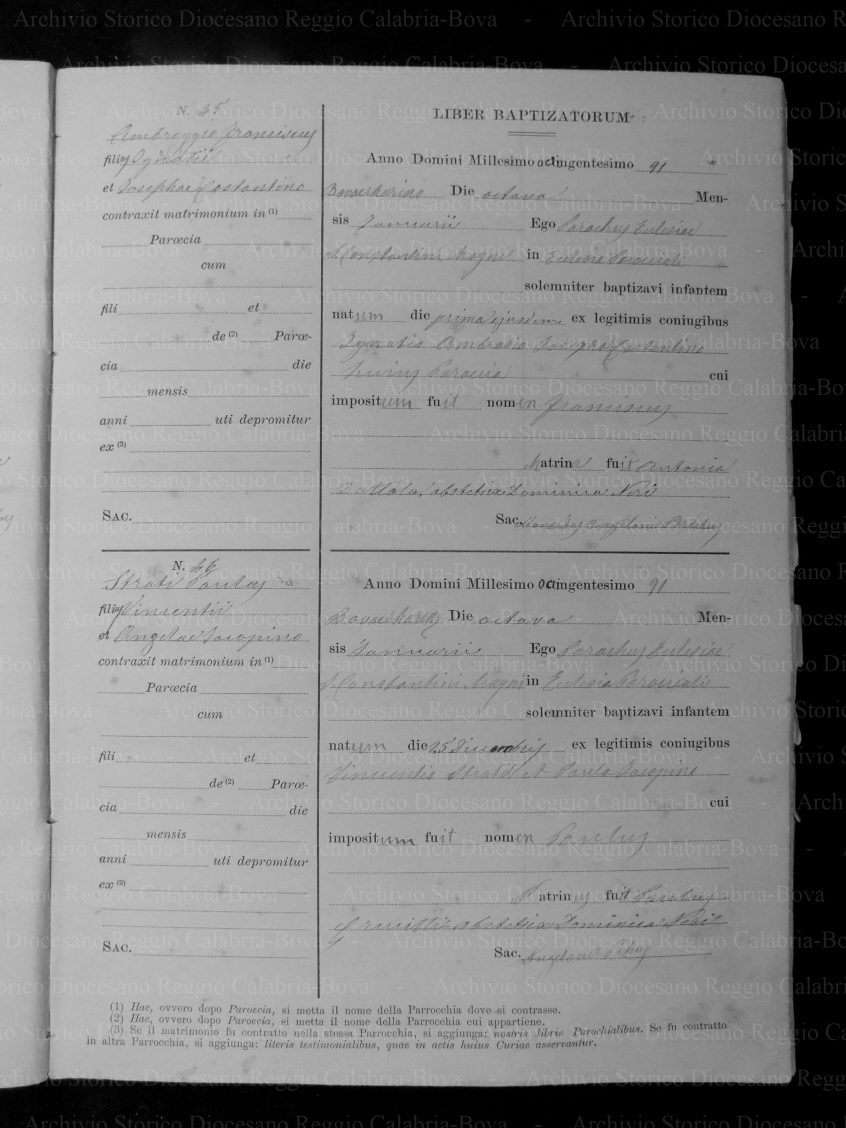 N. 45
Ambroggio Franciscus
filius Ignatii
et Josephae Costantino
contraxit matrimonium in (1)
Parœcia
cum
fili et
de (2) Parœ-
cia die
mensis
anni uti depromitur
ex (3)
SAC.
LIBER BAPTIZATORUM
Anno Domini Millesimo octingentesimo 91
Die octava Men-
sis Januarii Ego Parochus Eclesiae
in Eclesia Paroeciali
solemniter baptizavi infantem
natum die prima ejusdem ex legitimis coniugibus
Ignatio Josepha Costantino
hujus Paroecia cui
impositum fuit nomen Franciscus
Matrina fuit Antonia
obstetrix Dominica Neri
Sac.
N. 46
Strati Paulus
filius Vincentii
et Angelae Jacopino
contraxit matrimonium in (1)
Parœcia
cum
fili et
de (2) Parœ-
cia die
mensis
anni uti depromitur
ex (3)
SAC.
Anno Domini Millesimo octingentesimo 91
Die octava Men-
sis Januarii Ego Parochus Eclesiae
in Eclesia Paroeciali
solemniter baptizavi infantem
natum die 25 ex legitimis coniugibus
Vincentio Strati et Paula Jacopino
cui
impositum fuit nomen Paulus
Matrinus fuit Paulus
obstetrix Dominica Neri
Sac.
(1) Hac, ovvero dopo Paroecia, si metta il nome della Parrocchia dove si contrasse.
(2) Hac, ovvero dopo Paroecia, si metta il nome della Parrocchia cui appartiene.
(3) Se il matrimonio fu contratto nella stessa Parrocchia, si aggiunga: nostris libris Parochialibus. Se fu contratto
in altra Parrocchia, si aggiunga: literis testimonialibus, quae in actis huius Curiae asservantur.
Archivio Storico Diocesano Reggio Calabria-Bova